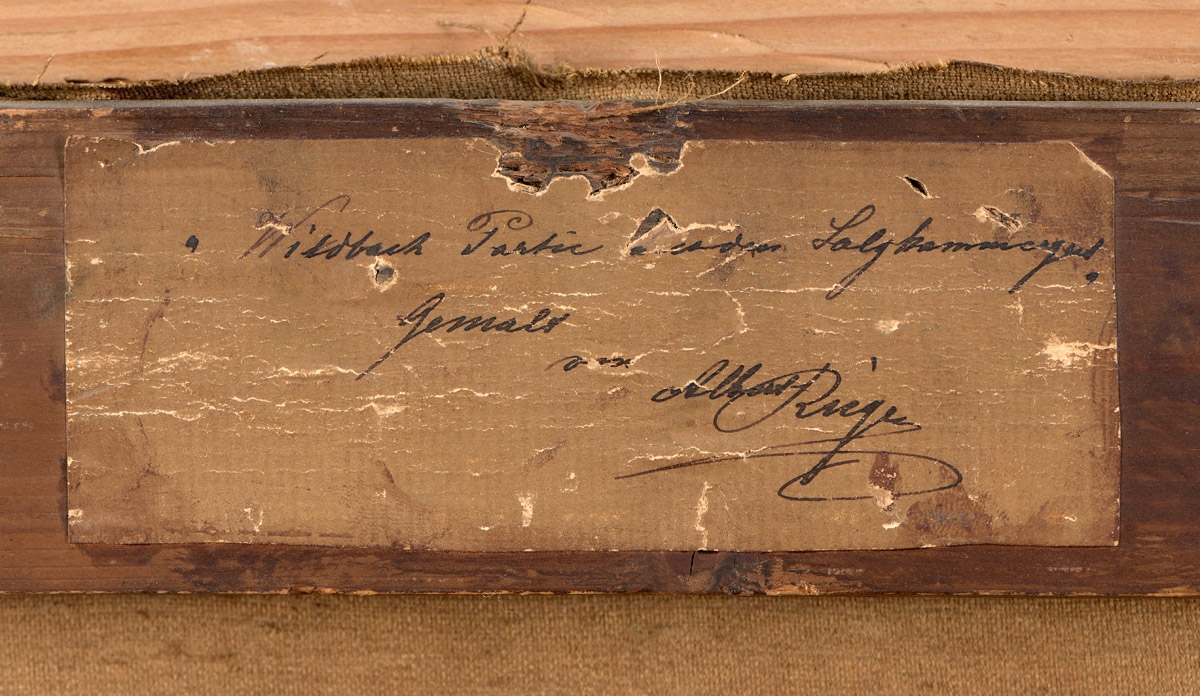 „Wildbach Partie aus dem Salzkammergut"
Gemalt
von
Albert Rieger